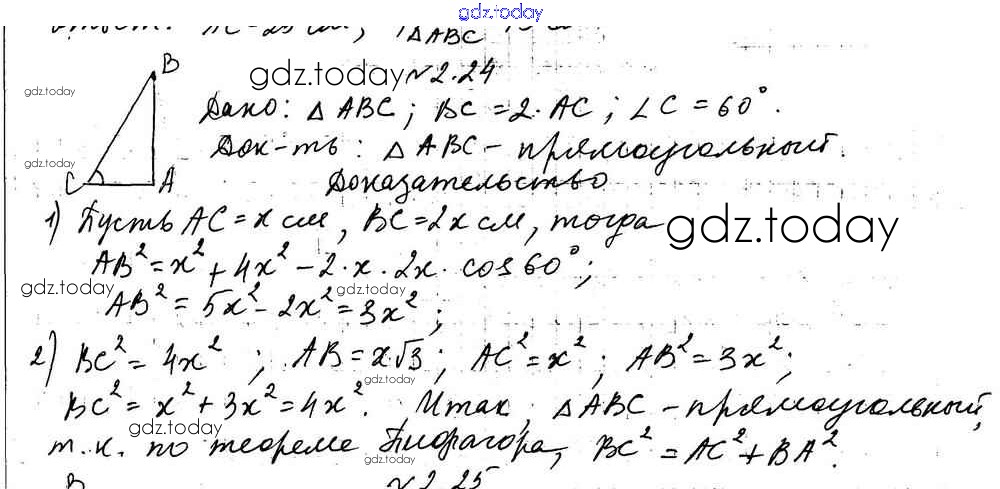 gdz.today
△ABC
gdz.today №2.24
B
gdz.today
Дано: △ABC; BC=2·AC; ∠C=60°.
gdz.today
Док-ть: △ABC - прямоугольный.
C A
Доказательство
1) Пусть AC=x см, BC=2x см, тогда gdz.today
AB²=x²+4x²-2·x·2x·cos60°;
gdz.today gdz.today
AB²=5x²-2x²=3x²;
2) BC²=4x²; AB=x√3; AC²=x²; AB²=3x²;
gdz.today
BC²=x²+3x²=4x². Итак, △ABC - прямоугольный,
gdz.today
т.к. по теореме Пифагора, BC²=AC²+BA².
gdz.today
B №2.25